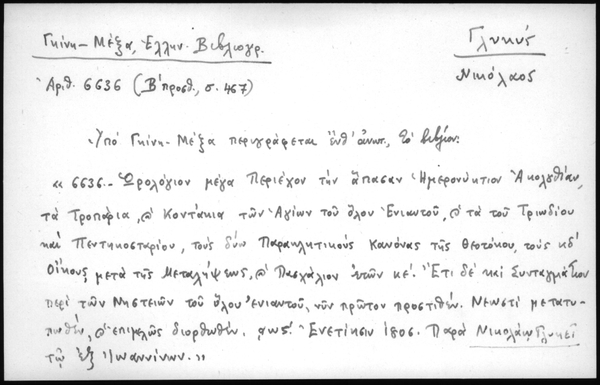 Γκίνη-Μέξα, Ἑλλην. Βιβλιογρ.
Γλυκύς
Νικόλαος
Ἀριθ. 6636 (Β΄ προσθ., σ. 467)
Ὑπὸ Γκίνη-Μέξα περιγράφεται ἔνθ᾽ ἀνωτ., τὸ βιβλίον:
« 6636.- Ὡρολόγιον μέγα Περιέχον τὴν ἅπασαν Ἡμερονύκτιον Ἀκολυθίαν,
τὰ Τροπάρια, ϗ Κοντάκια τῶν Ἁγίων τοῦ ὅλου Ἐνιαυτοῦ, ϗ τὰ τοῦ Τριωδίου
καὶ Πεντηκοσταρίου, τοὺς δύω Παρακλητικοὺς Κανόνας τῆς Θεοτόκου, τοὺς κδ΄
Οἴκους, μετὰ τῆς Μεταλήψεως, ϗ Πασχάλιον ἐτῶν κε΄. Ἔτι δὲ καὶ Συνταγμάτιον
περὶ τῶν Νηστειῶν τοῦ ὅλου ἐνιαυτοῦ, νῦν πρῶτον προστιθέν. Νεωστὶ μετατυ-
πωθέν, ϗ ἐπιμελῶς διορθωθέν. αως΄. Ἐνετίησιν 1806. Παρὰ Νικολάῳ Γλυκεῖ
τῷ ἐξ Ἰωαννίνων. »